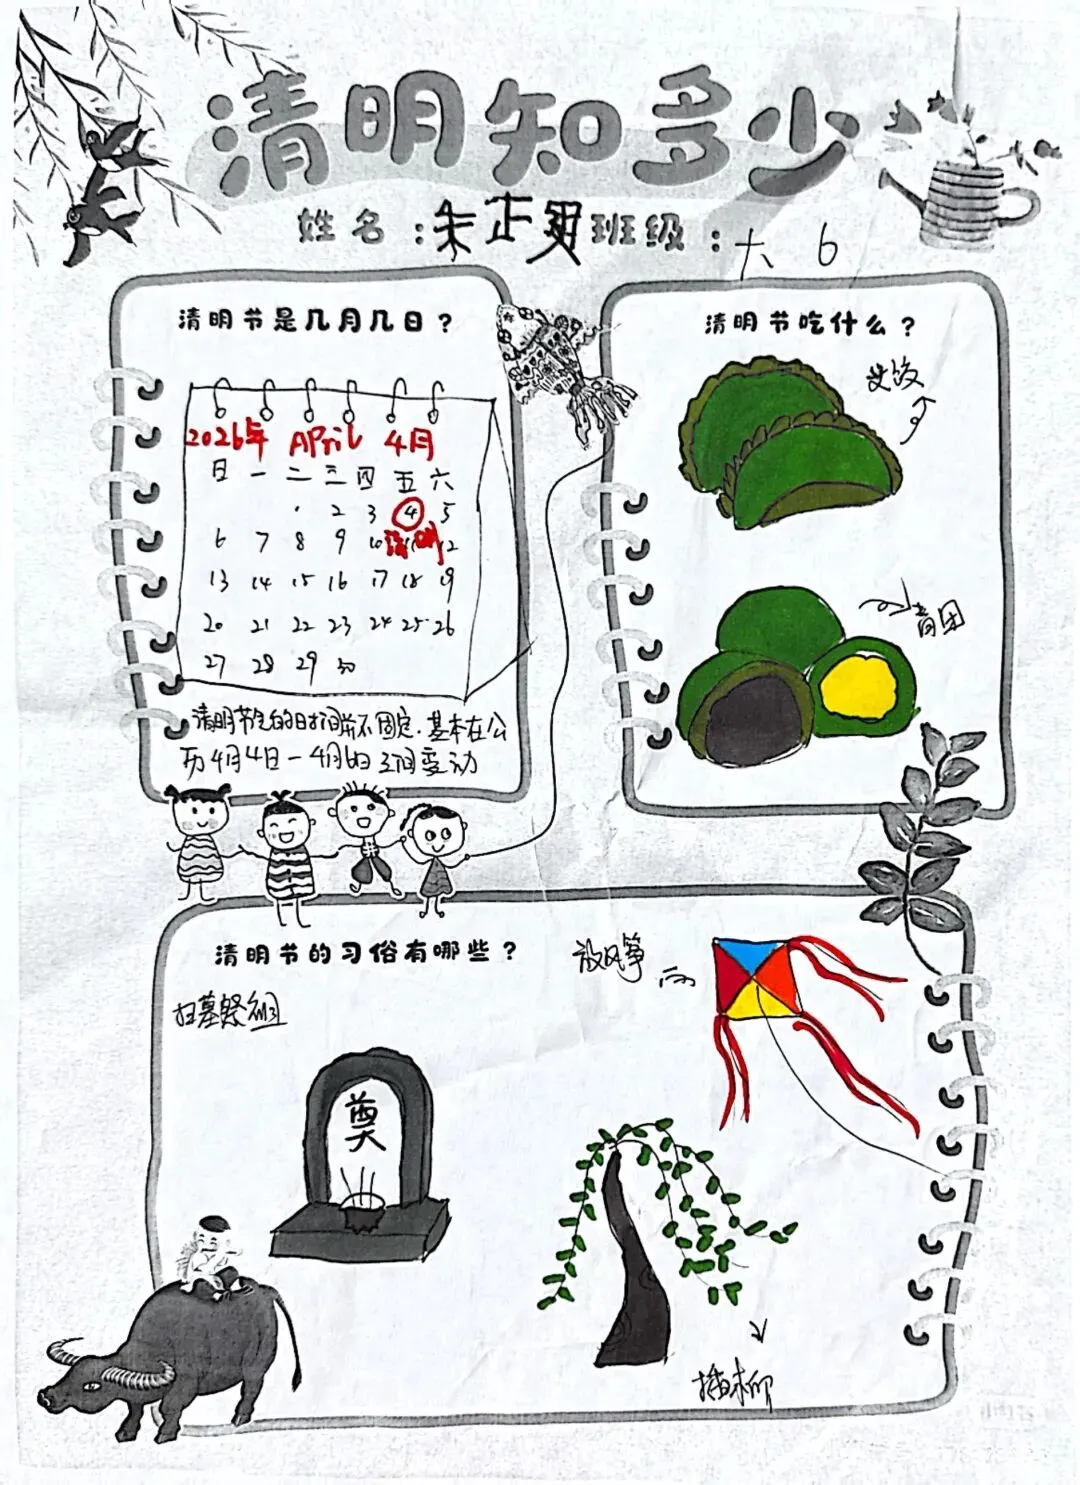 清明知多少
姓名：朱正男班级：大 6
清明节是几月几日？
2026年 APriL 4月
日 一 二 三 四 五 六
1 2 3 4 5
6 7 8 9 10 11 12
清明
13 14 15 16 17 18 19
20 21 22 23 24 25 26
27 28 29 30
清明节的时间并不固定.基本在公
历4月4日-4月6日之间变动
清明节吃什么？
艾饺子
青团
清明节的习俗有哪些？
扫墓祭祖
放风筝
奠
插柳